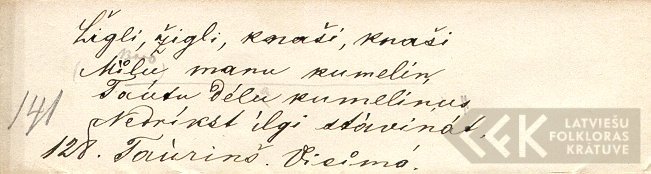 Žigli, žigli, knaši, knaši
Mīļu manu kumeliņ,
Tautu dēlu kumeliņus
Nedrīkst ilgi stāvināt.
141
128. Tauriņš. Visumā.
LATVIEŠU
FOLKLORAS
KRĀTUVE